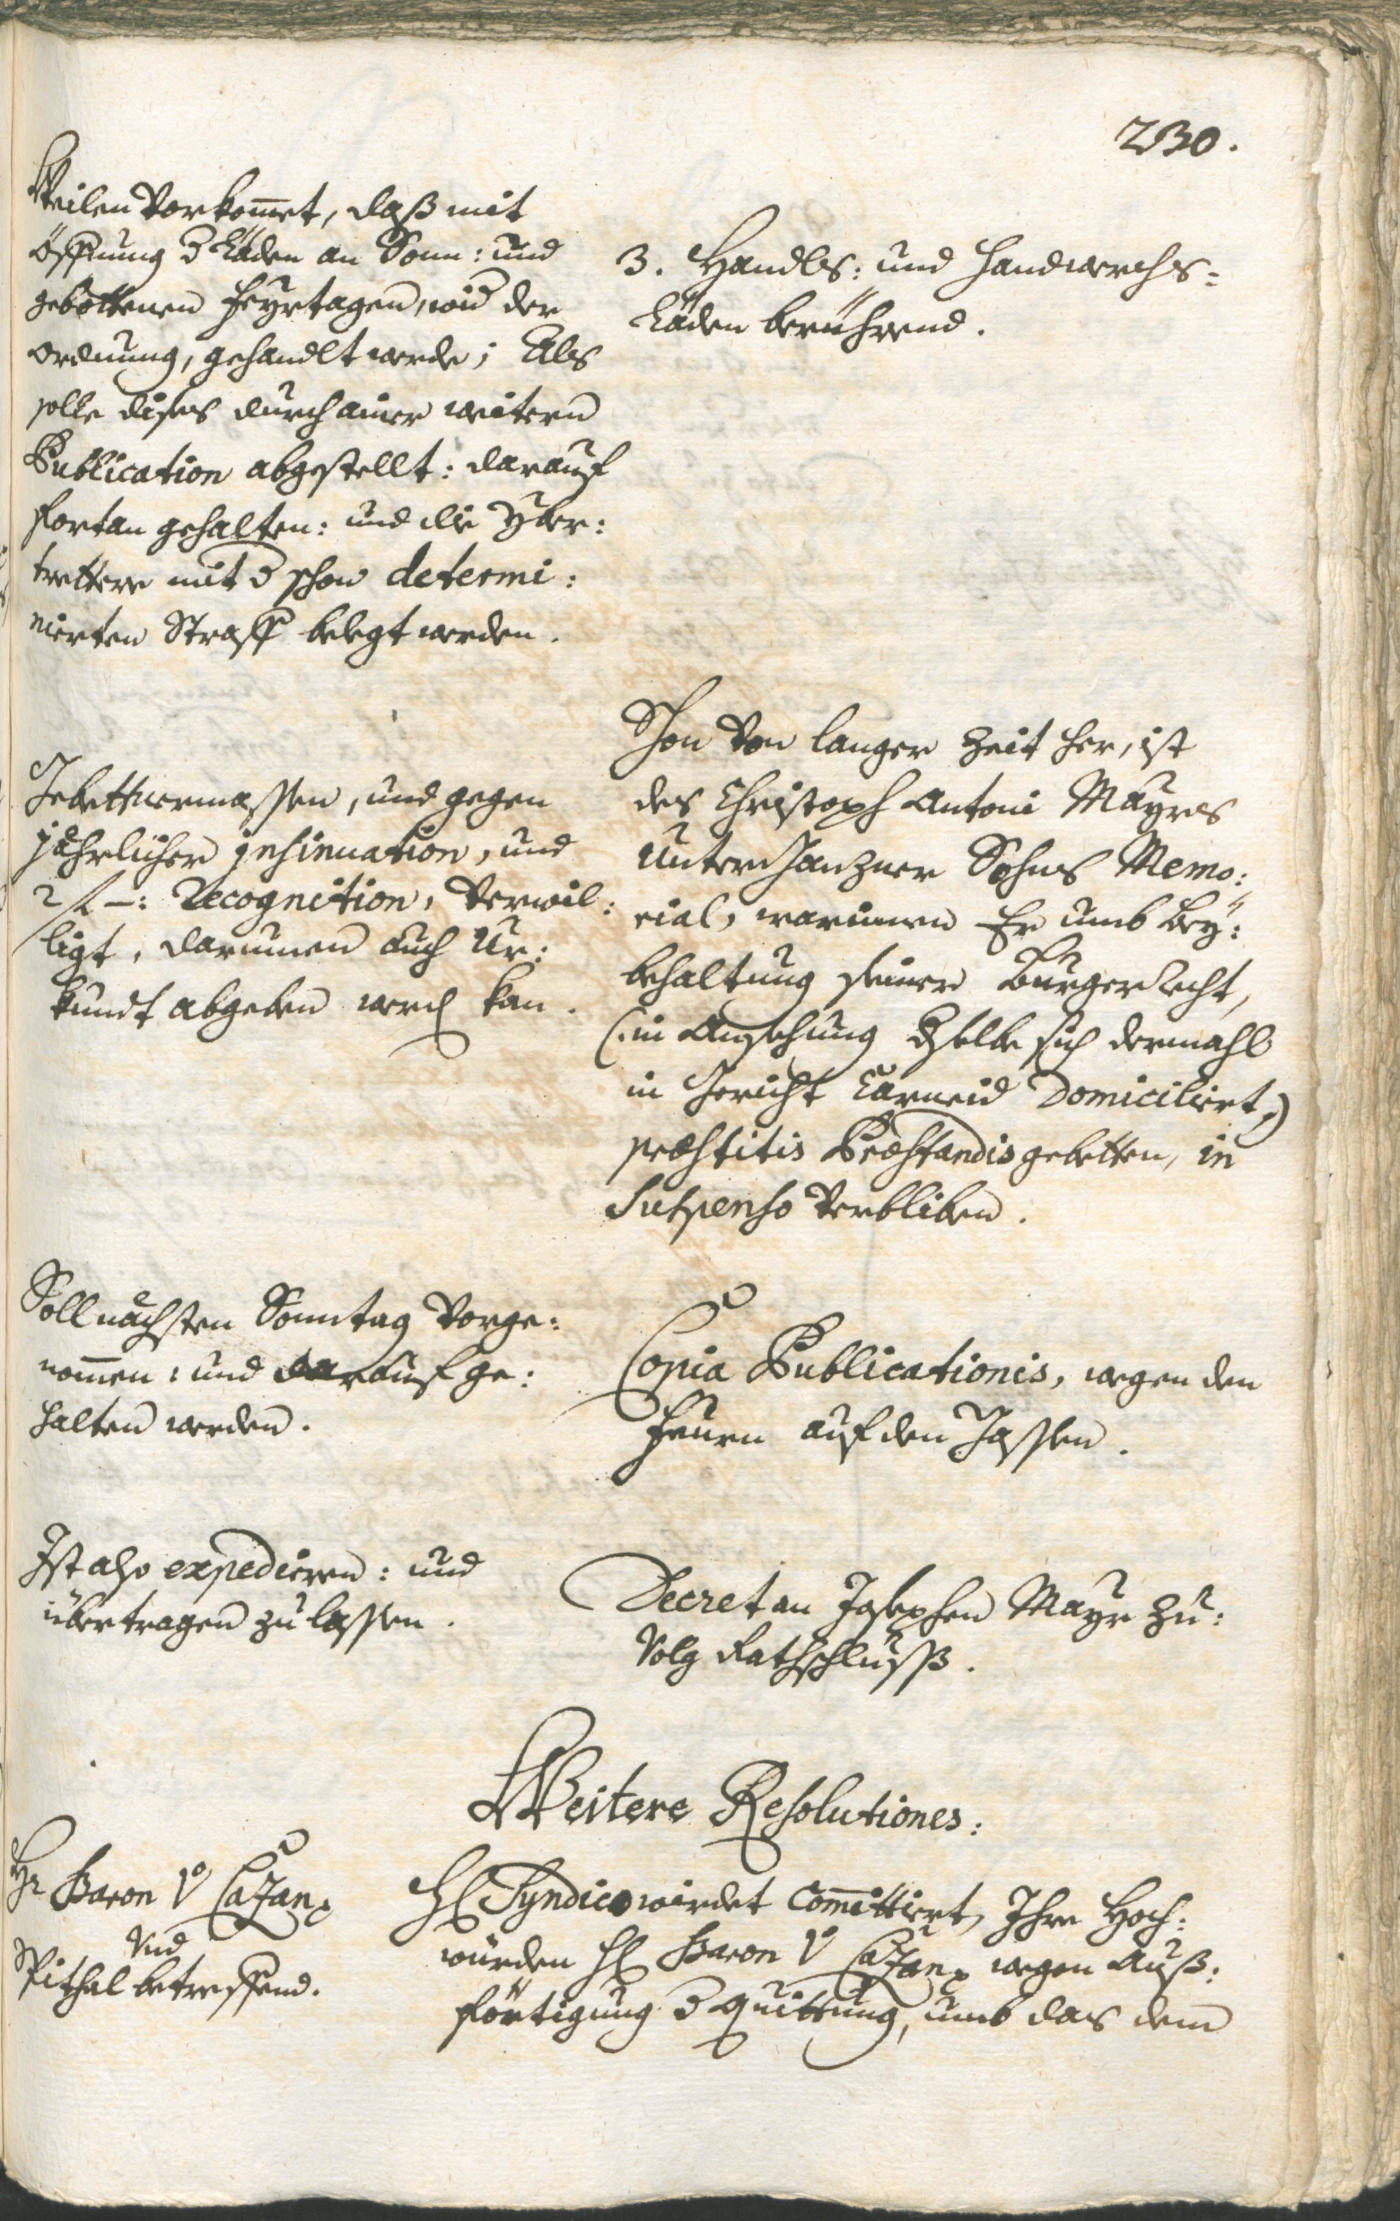 230.
Weilen vorkom̄et, daß mit
öffnung d Läden an Sonn: und
gebottenen Feyrtagen, wid der
ordnung, gehandlt werde; Als
solle dises durch ainer weitern
Publication abgestellt: darauf
fortan gehalten: und die yber:
trettere mit d schon determi:
nierten Straff belegt werden.
3. Handls: und Handwerchs=
Läden berührend.
Gebettnermassen, und gegen
jährlicher insinuation, und
2 f –: Recognition, verwil:
ligt, darumen auch Ur:
kundt abgeben werd kan.
Schon von langer Zeit her, ist
des Christoph Antoni Mayrs
Unterhanzner Sohns Memo:
rial, warinnen Er umb bey:
behaltung seiner Burgerrecht,
(:in Ansehung dselbe sich dermahl
in Gericht Carneid Domiciliert,)
præstitis Præstandis gebetten, in
Suspenso verbliben.
Soll nächsten Sonntag vorge:
nom̄en: und darauf ge:
halten werden.
Copia Publicationis, wegen den
Feurn auf den Gassen.
Ist also expedieren: und
übertragen zu lassen.
Decret an Josephen Mayr zu:
Volg Rathschluss.
Weitere Resolutiones:
Hr Baron v Cazan
Und
Spithal betreffend.
H Syndico wirdet Com̄ittiert, Ihre Hoch:
würden H Baron v Cazan wegen Auß:
förtigung d quittung, umb das dem